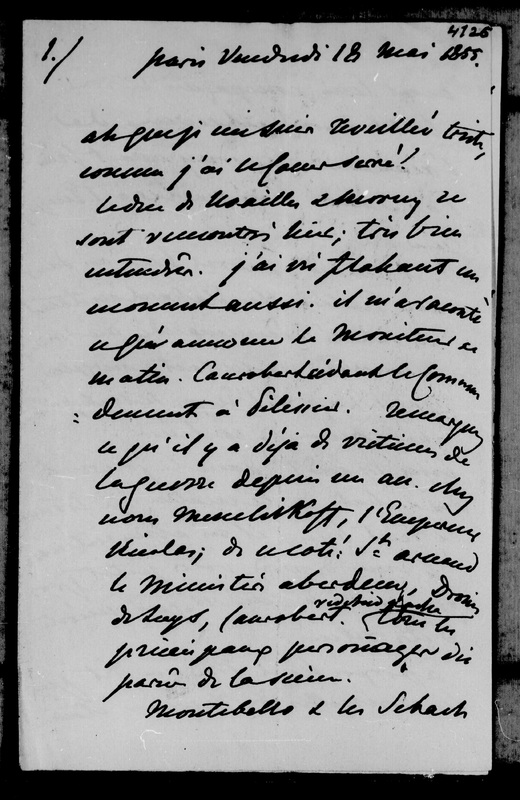 4126
1./ Paris Vendredi 18 Mai 1855.
ah que je me suis reveillée triste,
comme j'ai le cœur serré !
le duc de Noailles & Morny se
sont rencontrés hier ; très bien
entendus. j'ai vu Flahaut un
moment aussi. il m'a raconté
ce qu'annonce le Moniteur ce
matin. Canrobert cédant le Comman
= dement à Pélissier. remarquez
ce qu'il y a déjà de victimes de
la guerre depuis un an. chez
nous Menchikoff, l'Empereur
Nicolas ; de ce coté : St Arnaud
le Ministère aberdeen, Drouin
de Lhuys, Canrobert.
tous les
principaux personnages ont
de la scène.
Montebello & les Sebach